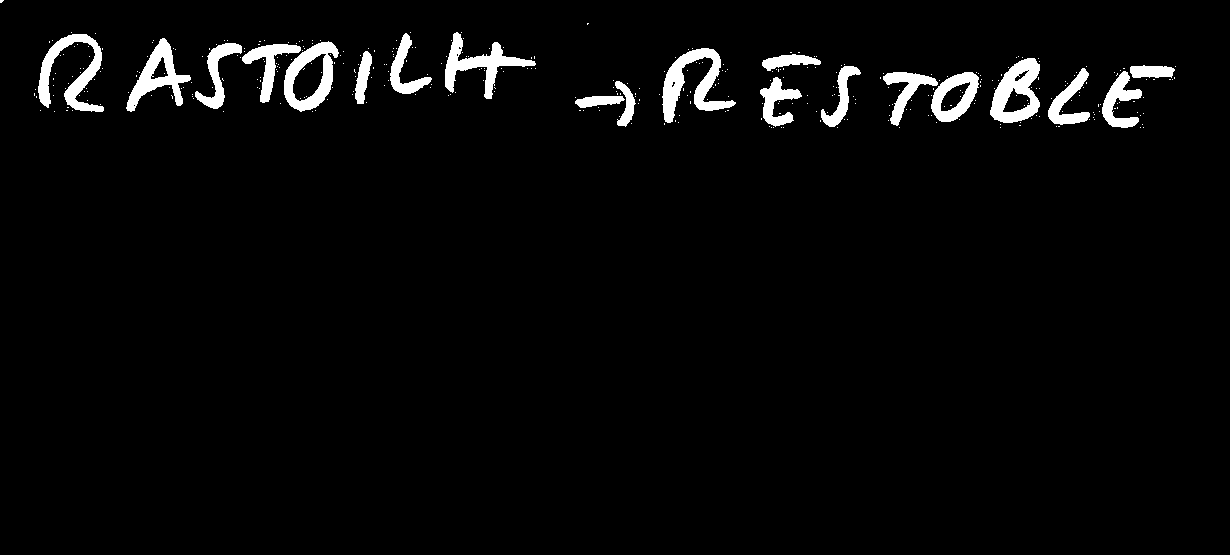 RASTOILH → RESTOBLE